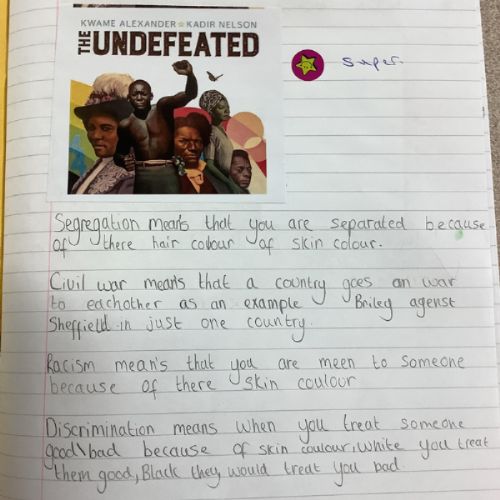 KWAME ALEXANDER ★ KADIR NELSON
THE UNDEFEATED
super.
Segregation means that you are separated because
of there hair colour of skin colour.
Civil war means that a country goes an war
to eachother as an example Briley agenst
Sheffield in just one country.
Racism mean's that you are meen to someone
because of there skin coulour
Discrimination means when you treat someone
good\bad because of skin coulour, white you treat
them good, Black they would treat you bad.